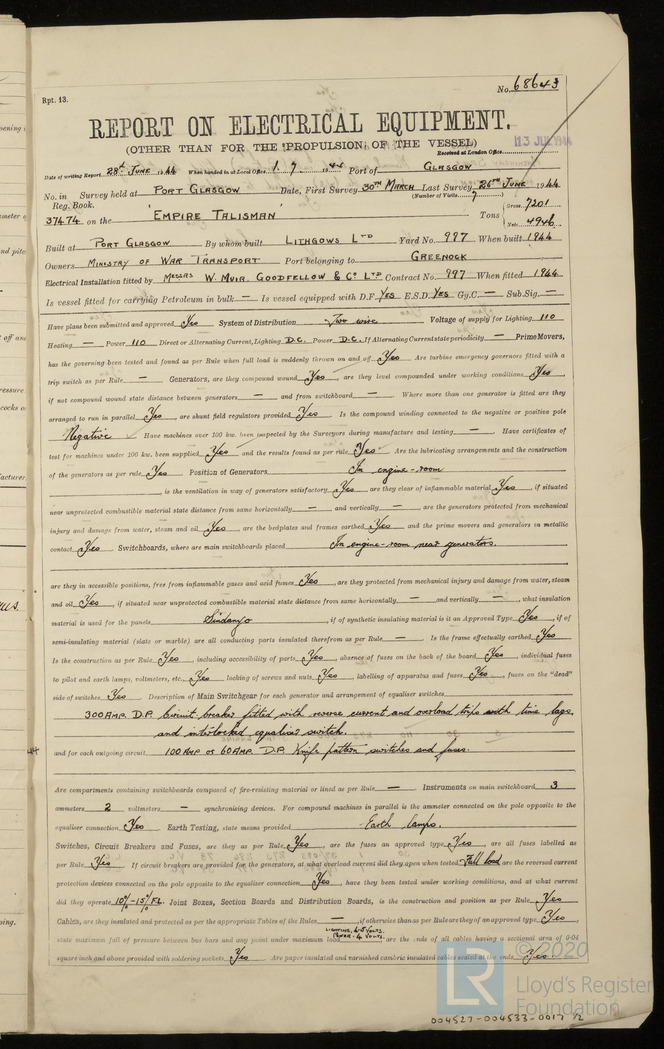 Rpt. 13.
No. 68643
REPORT ON ELECTRICAL EQUIPMENT.
(OTHER THAN FOR THE PROPULSION OF THE VESSEL)
13 JUL 1944
Received at London Office
Date of writing Report 28th JUNE 1944 When handed in at Local Office 1. 7. 1944 Port of GLASGOW
No. in Survey held at PORT GLASGOW Date, First Survey 30TH MARCH Last Survey 26TH JUNE 1944
Reg. Book. (Number of Visits 7)
37474 on the "EMPIRE TALISMAN" Tons Gross 7201 Nett 4946
Built at PORT GLASGOW By whom built LITHGOWS LTD Yard No. 997 When built 1944
Owners MINISTRY OF WAR TRANSPORT Port belonging to GREENOCK
Electrical Installation fitted by MESSRS W. MUIR. GOODFELLOW & CO LTD Contract No. 997 When fitted 1944
Is vessel fitted for carrying Petroleum in bulk — Is vessel equipped with D.F. YES E.S.D. YES Gy.C. — Sub.Sig. —
Have plans been submitted and approved Yes System of Distribution Two wire Voltage of supply for Lighting 110
Heating — Power 110 Direct or Alternating Current, Lighting D.C. Power D.C. If Alternating Current state periodicity — Prime Movers,
has the governing been tested and found as per Rule when full load is suddenly thrown on and off Yes Are turbine emergency governors fitted with a
trip switch as per Rule — Generators, are they compound wound Yes, are they level compounded under working conditions Yes,
if not compound wound state distance between generators — and from switchboard — Where more than one generator is fitted are they
arranged to run in parallel Yes, are shunt field regulators provided Yes Is the compound winding connected to the negative or positive pole
Negative Have machines over 100 kw. been inspected by the Surveyors during manufacture and testing — Have certificates of
test for machines under 100 kw. been supplied Yes and the results found as per rule Yes Are the lubricating arrangements and the construction
of the generators as per rule Yes Position of Generators In engine-room
is the ventilation in way of generators satisfactory Yes are they clear of inflammable material Yes, if situated
near unprotected combustible material state distance from same horizontally — and vertically —, are the generators protected from mechanical
injury and damage from water, steam and oil Yes, are the bedplates and frames earthed Yes and the prime movers and generators in metallic
contact Yes Switchboards, where are main switchboards placed In engine-room near generators.
are they in accessible positions, free from inflammable gases and acid fumes Yes, are they protected from mechanical injury and damage from water, steam
and oil Yes, if situated near unprotected combustible material state distance from same horizontally — and vertically —, what insulation
material is used for the panels Sindanyo, if of synthetic insulating material is it an Approved Type Yes, if of
semi-insulating material (slate or marble) are all conducting parts insulated therefrom as per Rule — Is the frame effectually earthed Yes
Is the construction as per Rule Yes, including accessibility of parts Yes, absence of fuses on the back of the board Yes, individual fuses
to pilot and earth lamps, voltmeters, etc. Yes locking of screws and nuts Yes, labelling of apparatus and fuses Yes, fuses on the "dead"
side of switches Yes Description of Main Switchgear for each generator and arrangement of equaliser switches
300 AMP. D.P. Circuit-breaker fitted with reverse current and overload trips with time lags,
and interlocked equaliser switch.
and for each outgoing circuit 100 AMP or 60 AMP. D.P. Knife pattern switches and fuses.
Are compartments containing switchboards composed of fire-resisting material or lined as per Rule — Instruments on main switchboard 3
ammeters 2 voltmeters — synchronising devices. For compound machines in parallel is the ammeter connected on the pole opposite to the
equaliser connection Yes Earth Testing, state means provided Earth lamps.
Switches, Circuit Breakers and Fuses, are they as per Rule Yes, are the fuses an approved type Yes, are all fuses labelled as
per Rule Yes If circuit breakers are provided for the generators, at what overload current did they open when tested Full load are the reversed current
protection devices connected on the pole opposite to the equaliser connection Yes, have they been tested under working conditions, and at what current
did they operate 10%-15% F.L. Joint Boxes, Section Boards and Distribution Boards, is the construction and position as per Rule Yes
Cables, are they insulated and protected as per the appropriate Tables of the Rules —, if otherwise than as per Rule are they of an approved type Yes,
state maximum fall of pressure between bus bars and any point under maximum load POWER 4 VOLTS, are the ends of all cables having a sectional area of 0·04
square inch and above provided with soldering sockets Yes Are paper insulated and varnished cambric insulated cables sealed at the ends Yes
© 2020
LR
Lloyd's Register
Foundation
004527-004533-0017 1/2